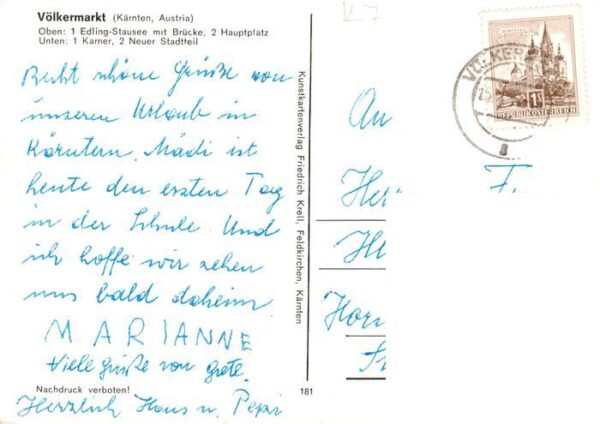 Völkermarkt (Kärnten, Austria)
Oben: 1 Edling-Stausee mit Brücke, 2 Hauptplatz
Unten: 1 Karner, 2 Neuer Stadtteil
Recht schöne Grüße von
unseren Urlaub in
Kärntern. Mädi ist
heute den ersten Tag
in der Schule. Und
ich hoffe wir sehen
uns bald daheim
MARIANNE
Viele grüße von Grete.
Nachdruck verboten!
Herzlich Hans u. Pepi
181
Kunstkartenverlag Friedrich Krell, Feldkirchen, Kärnten
K 7
1 S
REPUBLIK ÖSTERREICH
An
F.